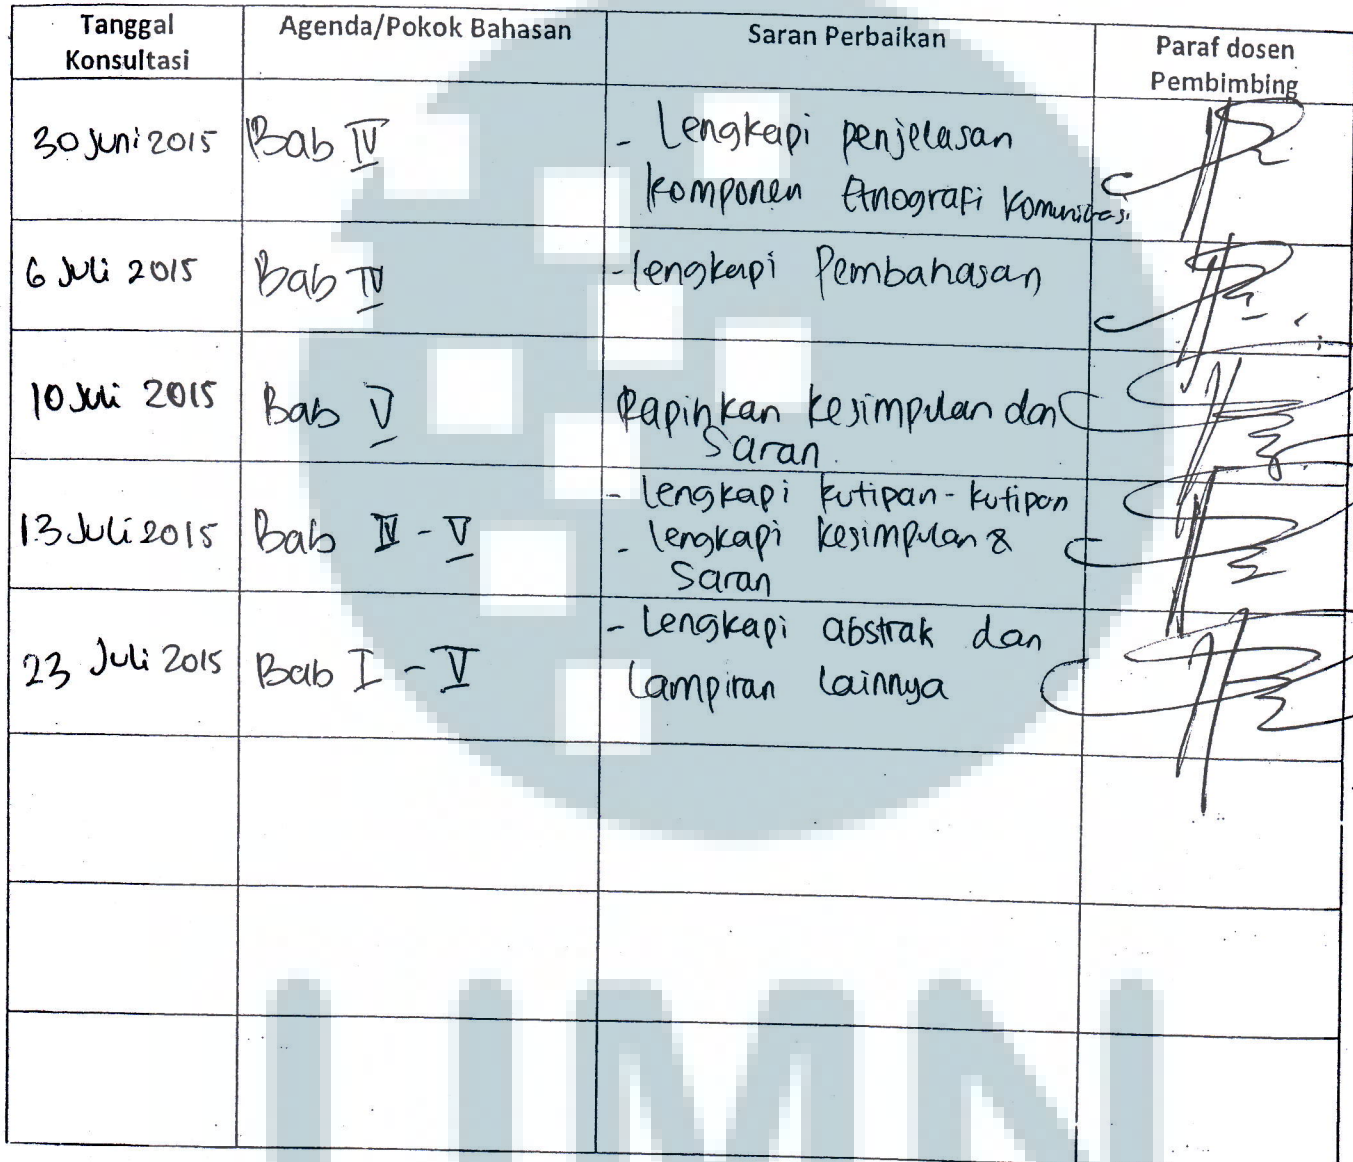 Tanggal Konsultasi
Agenda/Pokok Bahasan
Saran Perbaikan
Paraf dosen Pembimbing
30 Juni 2015
Bab IV
- Lengkapi penjelasan
komponen Etnografi Komunikasi
6 Juli 2015
Bab IV
- lengkapi Pembahasan
10 Juli 2015
Bab V
Rapihkan kesimpulan dan
Saran.
13 Juli 2015
Bab IV - V
- lengkapi kutipan-kutipan
- lengkapi kesimpulan &
Saran
23 Juli 2015
Bab I - V
- Lengkapi abstrak dan
Lampiran lainnya
UMN